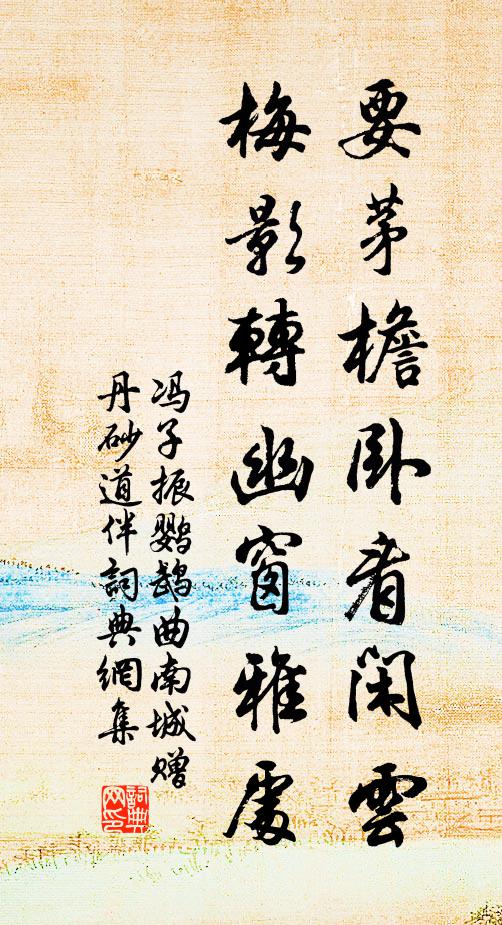 要茅檐卧看闲雲
梅影轉幽窗雅處
冯子振鹦鹉曲南城赠
丹砂道伴詞典網集
詞典
网印